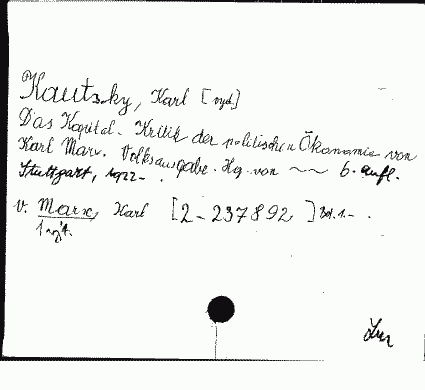 Kautsky, Karl [nyd.]
Das Kapital. Kritik der politischen Ökonomie von
Karl Marx. Volksausgabe. Hg. von ~~ 6. Aufl.
Stuttgart, 1922-.
v. Marx, Karl [2-237892] Bd. 1-.